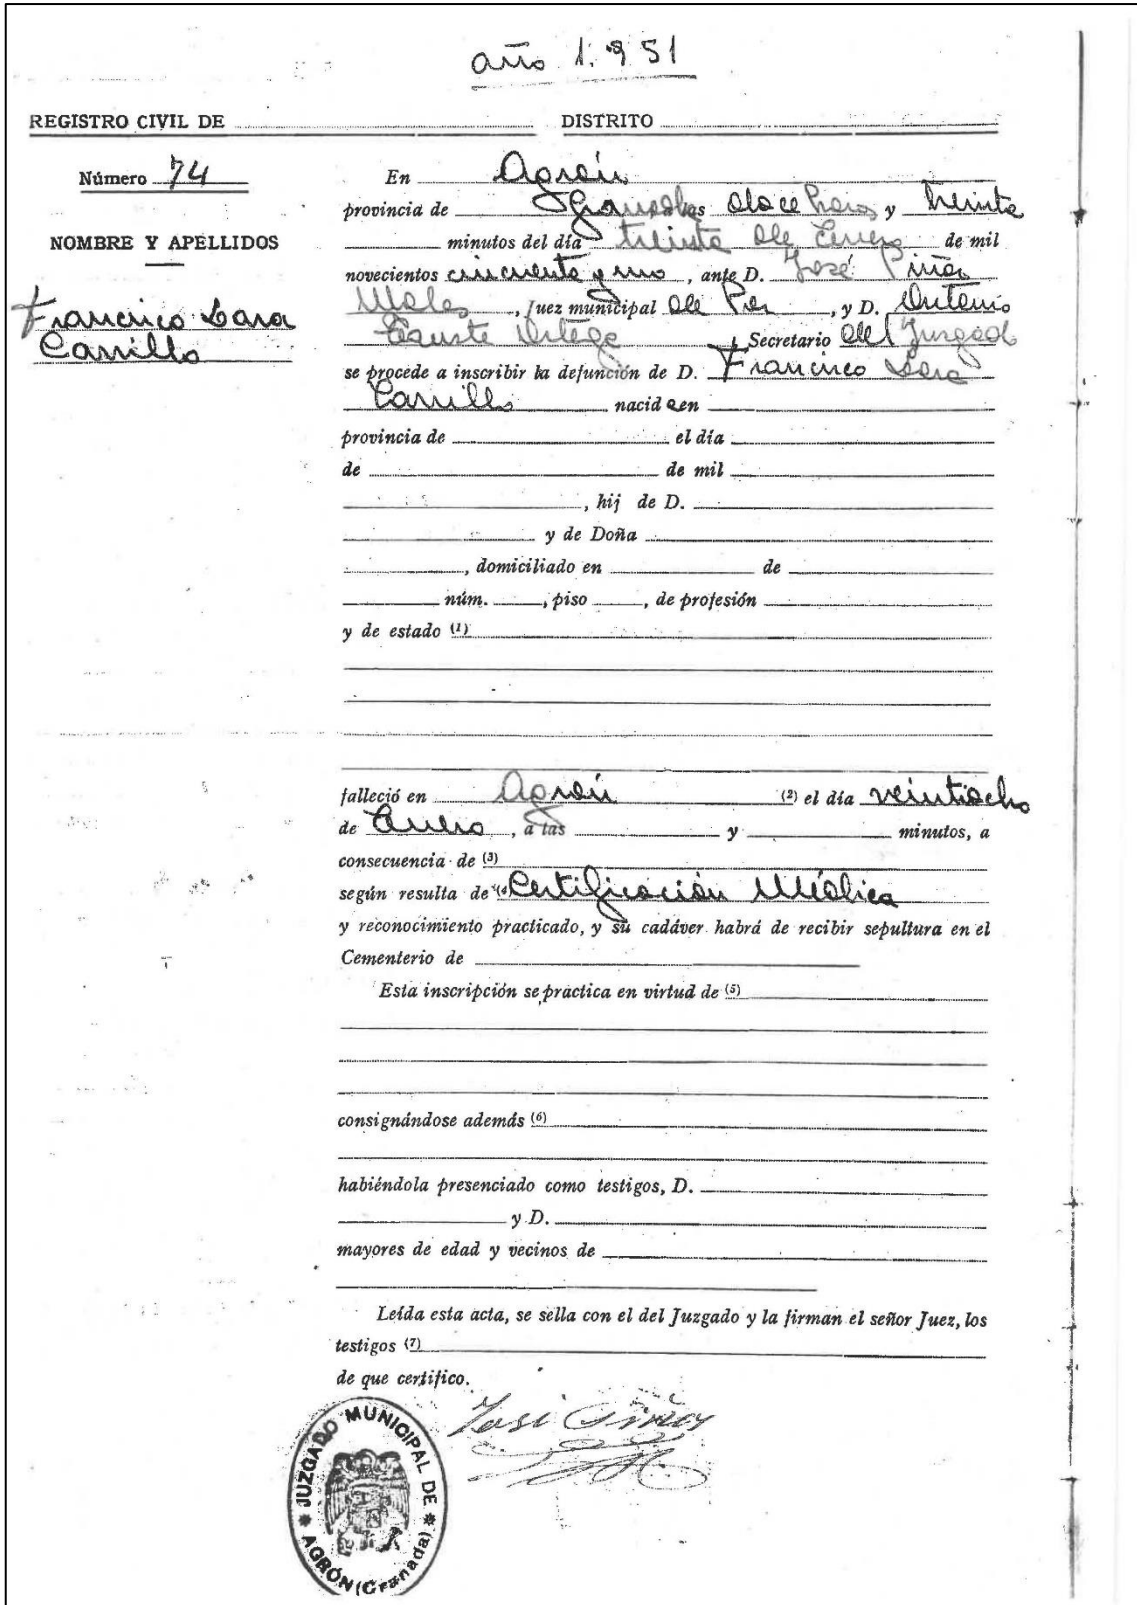 año 1.951
REGISTRO CIVIL DE DISTRITO
Número 74
NOMBRE Y APELLIDOS
Francisco Lara
Carrillo
En Agrón
provincia de Granada a las doce horas y treinta
minutos del día treinta de Enero de mil
novecientos cincuenta y uno, ante D. José Piñar
, Juez municipal de Paz, y D. Antonio
Ortega, Secretario del Juzgado
se procede a inscribir la defunción de D. Francisco Lara
Carrillo nacido en
provincia de el día
de de mil
, hij de D.
y de Doña
, domiciliado en de
núm. , piso , de profesión
y de estado (1)
falleció en Agrón (2) el día veintiocho
de Enero, a las y minutos, a
consecuencia de (3)
según resulta de (4) Certificación Médica
y reconocimiento practicado, y su cadáver habrá de recibir sepultura en el
Cementerio de
Esta inscripción se practica en virtud de (5)
consignándose además (6)
habiéndola presenciado como testigos, D.
y D.
mayores de edad y vecinos de
Leída esta acta, se sella con el del Juzgado y la firman el señor Juez, los
testigos (7)
de que certifico.
José Piñar
JUZGADO MUNICIPAL DE
AGRÓN (Granada)